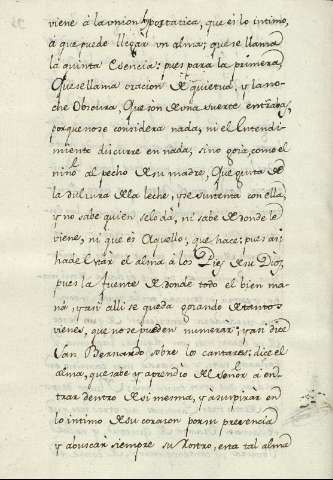 viene â la vnion hypostatica, que es lo intimo,
â que puede llegar vn alma; que se llama
la quinta esencia: pues para la primera,
que se llama oracion de quietud, y la no-
che Obscura, que son de una suerte entrabas
porque no se considera nada, ni el Entendi-
miento discurre en nada, sino goza, como el
niño al pecho de su madre, que gusta de
la dulzura de la leche, y se sustenta con ella,
y no sabe quien se lo dá, ni sabe de donde le
viene, ni que es aquello, que hace; pues asi
ha de estár el alma â los Pies de su Dios,
pues la fuente de donde todo el bien ma-
ná y asi alli se queda gozando de tantos
vienes, que no se pueden numerar; y asi dice
San Bernardo sobre los cantares; dice el
alma, que sabe y aprendio del señor a en-
trar dentro de si mesma, y a suspirar en
lo intimo de su corazon por su presencia
y a buscar siempre su Rostro, esta tal alma